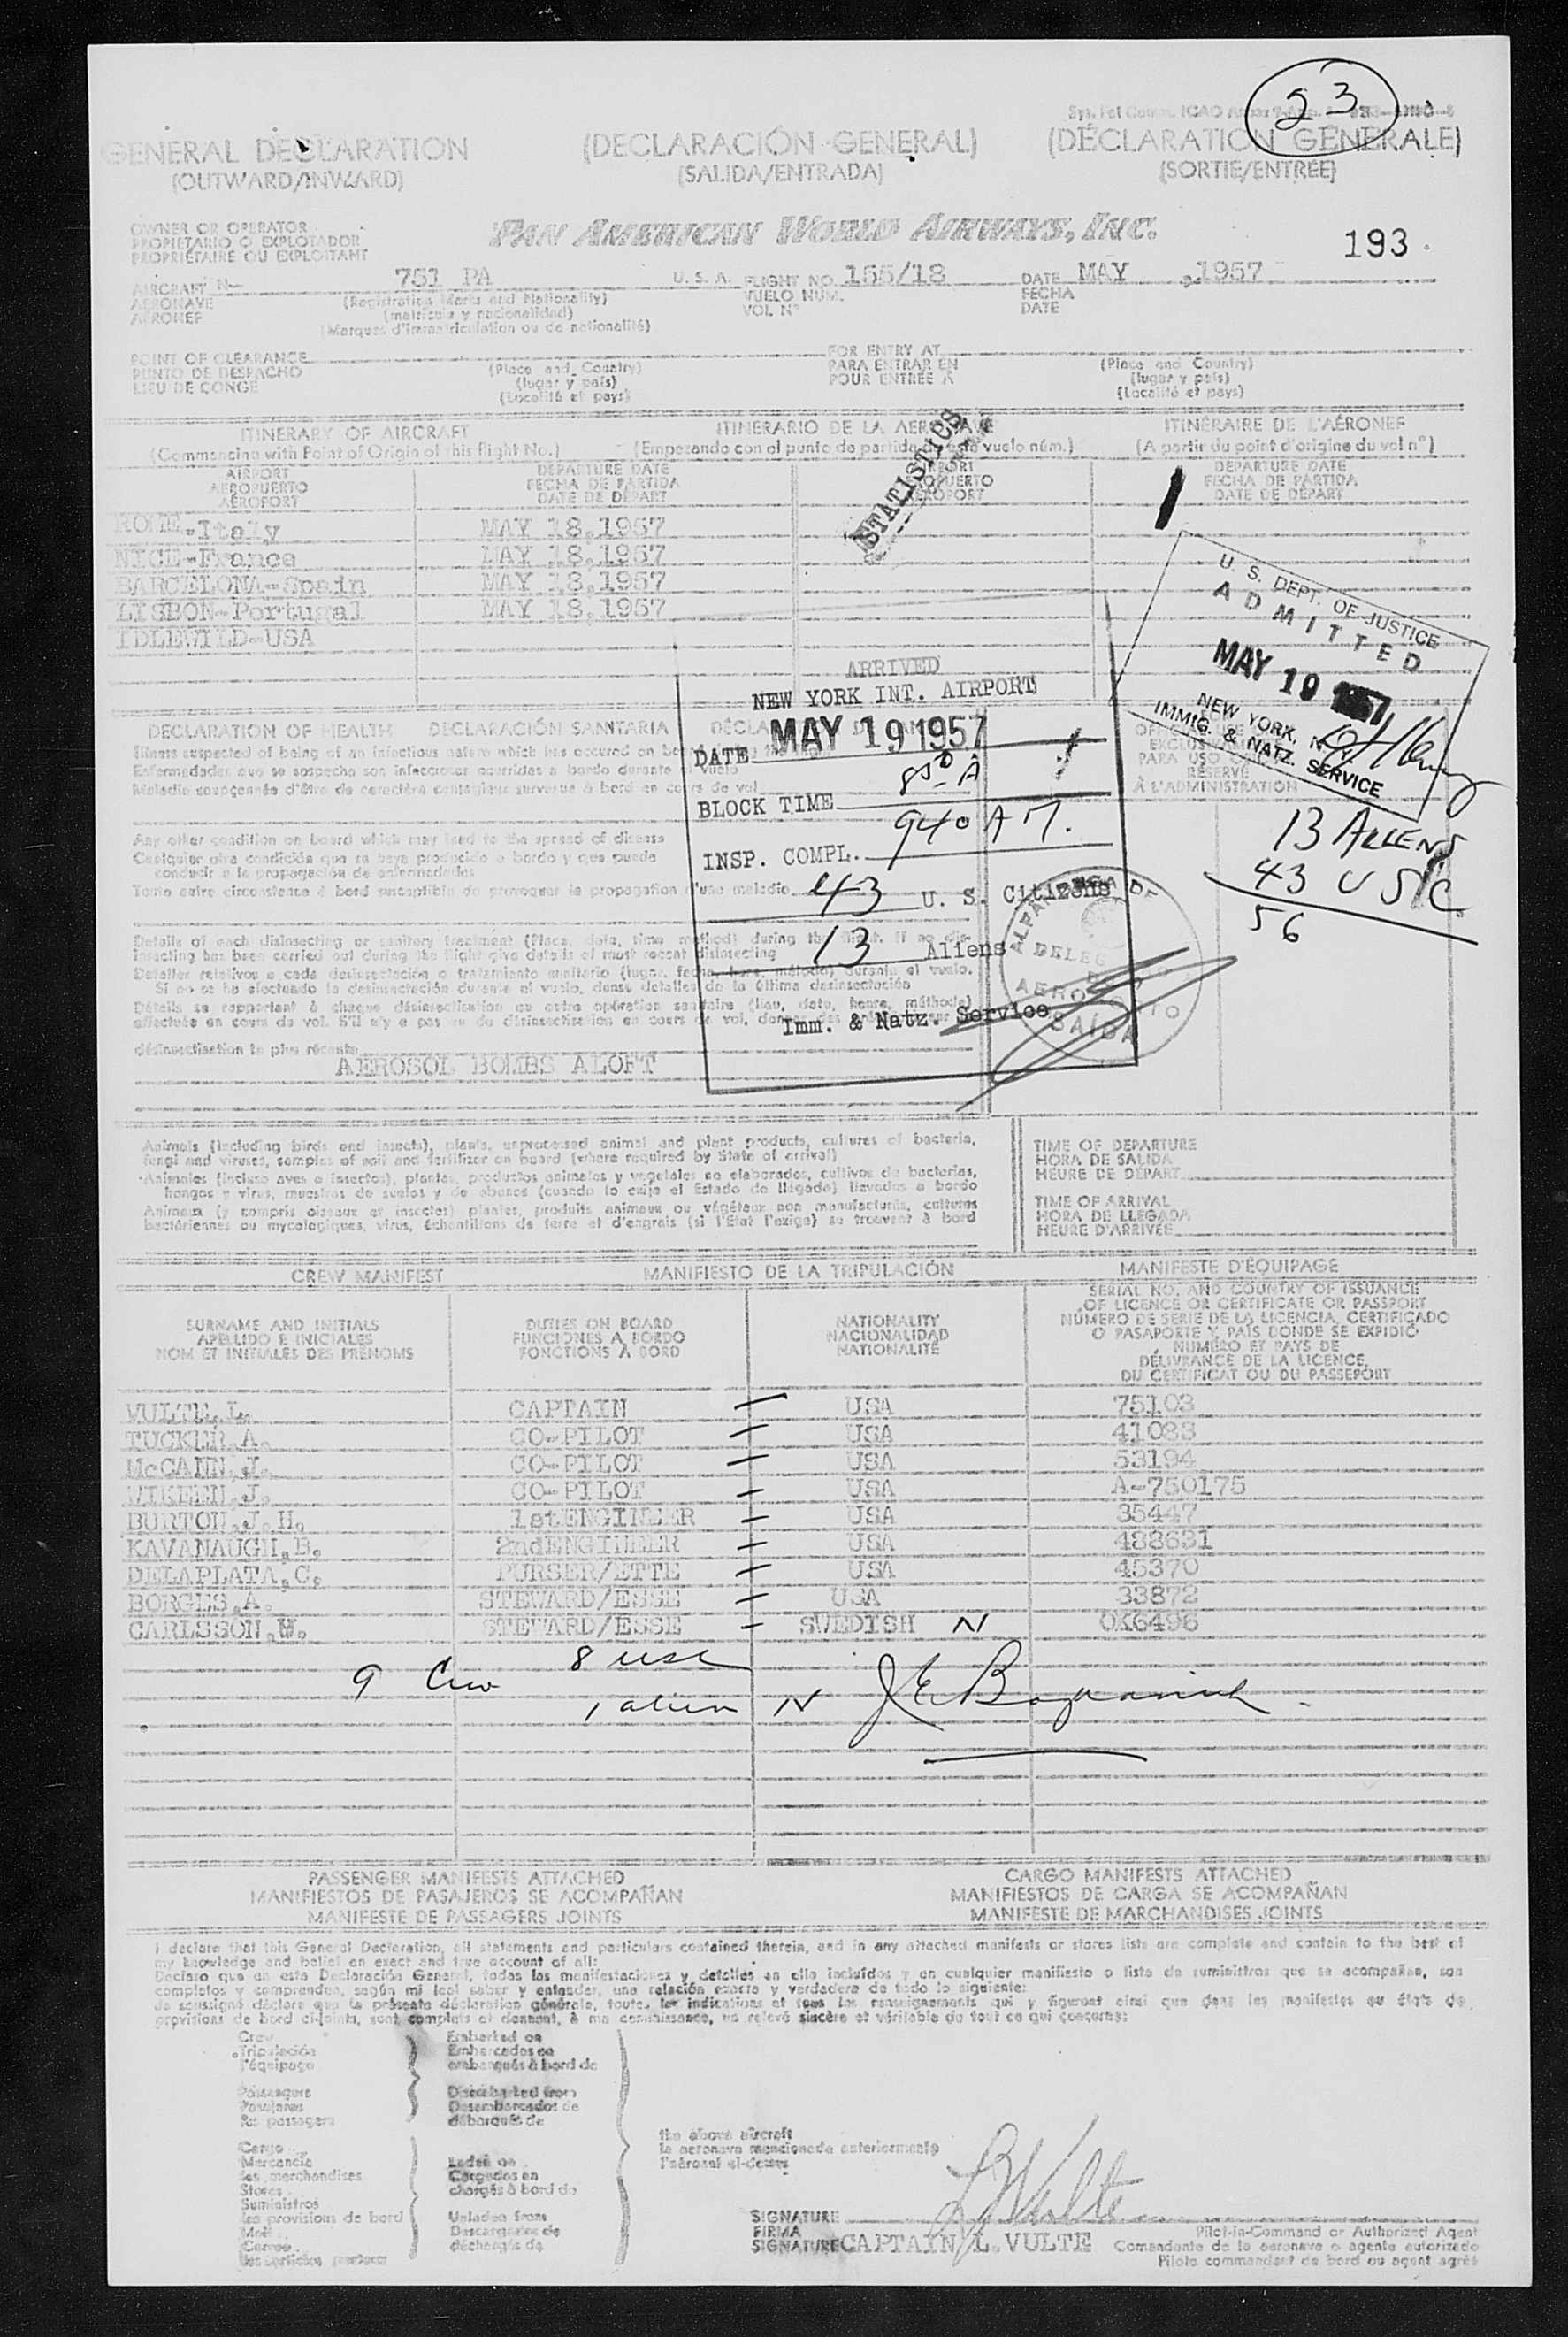 23
GENERAL DECLARATION
(OUTWARD/INWARD)
(DECLARACIÓN GENERAL)
(SALIDA/ENTRADA)
(DÉCLARATION GÉNÉRALE)
(SORTIE/ENTRÉE)
OWNER OR OPERATOR
PROPIETARIO O EXPLOTADOR
PROPRIÉTAIRE OU EXPLOITANT
PAN AMERICAN WORLD AIRWAYS, INC.
193
AIRCRAFT N- 751 PA U. S. A. FLIGHT NO. 155/18 DATE MAY , 1957
AERONAVE (Registration Marks and Nationality) VUELO NÚM. FECHA
AÉRONEF (matrícula y nacionalidad) VOL Nº DATE
(Marques d'immatriculation ou de nationalité)
POINT OF CLEARANCE FOR ENTRY AT
PUNTO DE DESPACHO (Place and Country) PARA ENTRAR EN (Place and Country)
LIEU DE CONGÉ (lugar y país) POUR ENTRÉE À (lugar y país)
(Localité et pays) (Localité et pays)
ITINERARY OF AIRCRAFT ITINERARIO DE LA AERONAVE ITINÉRAIRE DE L'AÉRONEF
(Commencing with Point of Origin of this Flight No.) (Empezando con el punto de partida de este vuelo núm.) (A partir du point d'origine du vol nº)
AIRPORT DEPARTURE DATE AIRPORT DEPARTURE DATE
AEROPUERTO FECHA DE PARTIDA AEROPUERTO FECHA DE PARTIDA
AÉROPORT DATE DE DÉPART AÉROPORT DATE DE DÉPART
STATISTICS
ROME-Italy MAY 18,1957
NICE-France MAY 18,1957
BARCELONA-Spain MAY 18,1957
LISBON-Portugal MAY 18,1957
IDLEWILD-USA
U. S. DEPT. OF JUSTICE
ADMITTED
MAY 19 1957
NEW YORK, N.Y.
IMMIG. & NATZ. SERVICE
ARRIVED
NEW YORK INT. AIRPORT
DATE MAY 19 1957
BLOCK TIME 850 A
INSP. COMPL. 940 AM.
43 U. S. Citizens
13 Aliens
Imm. & Natz. Service
13 ALIENS
43 USC
56
DECLARATION OF HEALTH DECLARACIÓN SANITARIA
Illness suspected of being of an infectious nature which has occured on board during the flight
Enfermedades que se sospecha son infecciosas ocurridas a bordo durante el vuelo
Maladie soupçonnée d'être de caractère contagieux survenue à bord en cours de vol
PARA USO OFICIAL
RÉSERVÉ
À L'ADMINISTRATION
Any other condition on board which may lead to the spread of disease
Cualquier otra condición que se haya producido a bordo y que puede
conducir a la propagación de enfermedades
Toute autre circonstance à bord susceptible de provoquer la propagation d'une maladie
Details of each disinsecting or sanitary treatment (Place, date, time method) during the flight. If no dis-
insecting has been carried out during the flight give details of most recent disinsecting
Detalles relativos a cada desinsectación o tratamiento sanitario (lugar, fecha, hora, método) durante el vuelo.
Si no se ha efectuado la desinsectación durante el vuelo, dense detalles de la última desinsectación
Détails se rapportant à chaque désinsectisation ou autre opération sanitaire (lieu, date, heure, méthode)
effectuée en cours de vol. S'il n'y a pas eu de désinsectisation en cours de vol,
désinsectisation la plus récente
AEROSOL BOMBS ALOFT
AEROPORTO
SAÍDA
Animals (including birds and insects), plants, unprocessed animal and plant products, cultures of bacteria,
fungi and viruses, samples of soil and fertilizer on board (where required by State of arrival)
Animales (incluso aves e insectos), plantas, productos animales y vegetales no elaborados, cultivos de bacterias,
hongos y virus, muestras de suelos y de abonos (cuando lo exija el Estado de llegada) llevados a bordo
Animaux (y compris oiseaux et insectes) plantes, produits animaux ou végétaux non manufacturés, cultures
bactériennes ou mycologiques, virus, échantillons de terre et d'engrais (si l'État l'exige) se trouvant à bord
TIME OF DEPARTURE
HORA DE SALIDA
HEURE DE DÉPART
TIME OF ARRIVAL
HORA DE LLEGADA
HEURE D'ARRIVÉE
CREW MANIFEST MANIFIESTO DE LA TRIPULACIÓN MANIFESTE D'ÉQUIPAGE
SURNAME AND INITIALS
APELLIDO E INICIALES
NOM ET INITIALES DES PRÉNOMS
DUTIES ON BOARD
FUNCIONES A BORDO
FONCTIONS À BORD
NATIONALITY
NACIONALIDAD
NATIONALITÉ
SERIAL NO. AND COUNTRY OF ISSUANCE
OF LICENCE OR CERTIFICATE OR PASSPORT
NÚMERO DE SERIE DE LA LICENCIA, CERTIFICADO
O PASAPORTE Y PAÍS DONDE SE EXPIDIÓ
NUMÉRO ET PAYS DE
DÉLIVRANCE DE LA LICENCE,
DU CERTIFICAT OU DU PASSEPORT
VULTE,L. CAPTAIN USA 75103
TUCKER,A. CO-PILOT USA 41083
McCANN,J. CO-PILOT USA 53194
MIKEEN,J. CO-PILOT USA A-750175
BURTON,J.H. 1stENGINEER USA 35447
KAVANAUGH,B. 2ndENGINEER USA 488631
DELAPLATA,C. PURSER/ETTE USA 45370
BORGES,A. STEWARD/ESSE USA 33872
CARLSSON,M. STEWARD/ESSE SWEDISH N OK6496
9 Crew 8 usc
1 alien N
PASSENGER MANIFESTS ATTACHED
MANIFIESTOS DE PASAJEROS SE ACOMPAÑAN
MANIFESTE DE PASSAGERS JOINTS
CARGO MANIFESTS ATTACHED
MANIFIESTOS DE CARGA SE ACOMPAÑAN
MANIFESTE DE MARCHANDISES JOINTS
I declare that this General Declaration, all statements and particulars contained therein, and in any attached manifests or stores lists are complete and contain to the best of
my knowledge and belief an exact and true account of all:
Declaro que en esta Declaración General, todas las manifestaciones y detalles en ella incluídos y en cualquier manifiesto o lista de suministros que se acompañan, son
completos y comprenden, según mi leal saber y entender, una relación exacta y verdadera de todo lo siguiente:
Je soussigné déclare que la présente déclaration générale, toutes les indications et tous les renseignements qui y figurent ainsi que dans les manifestes ou états de
provisions de bord ci-joints, sont complets et donnent, à ma connaissance, un relevé sincère et véritable de tout ce qui concerne:
Crew Embarked on
Tripulación Embarcados en
l'équipage embarqués à bord de
Passengers Disembarked from
Pasajeros Desembarcados de
les passagers débarqués de
the above aircraft
la aeronave mencionada anteriormente
l'aéronef ci-dessus
Cargo
Mercancía Laden on
les marchandises Cargados en
Stores chargés à bord de
Suministros
les provisions de bord Unladen from
Mail Descargados de
Correo déchargés de
L Vulte
SIGNATURE
FIRMA
SIGNATURE CAPTAIN L. VULTE
Pilot-in-Command or Authorized Agent
Comandante de la aeronave o agente autorizado
Pilote commandant de bord ou agent agréé